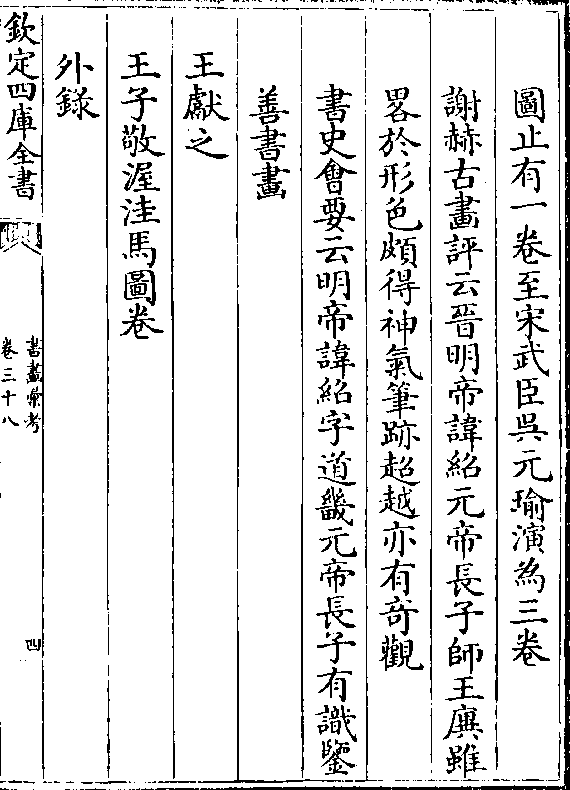 圖止有一卷至宋武臣吳元瑜演為三卷
謝赫古畫評云晉明帝諱紹元帝長子師王廙雖
畧於形色頗得神氣筆跡超越亦有竒觀
書史會要云明帝諱紹字道畿元帝長子有識鑒
善書畫
王獻之
王子敬渥洼馬圖卷
外錄
欽定四庫全書
書畫彙考
卷三十八
四